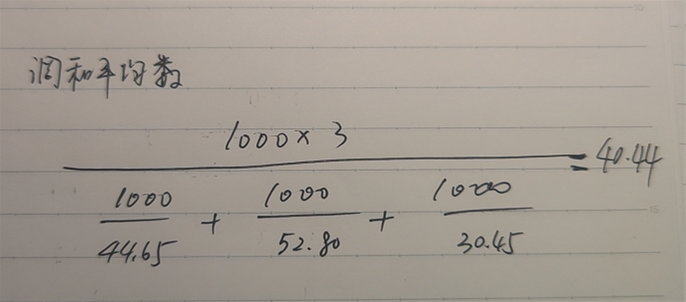 调和平均数
1000×3
1000/44.65 + 1000/52.80 + 1000/30.45 = 40.44